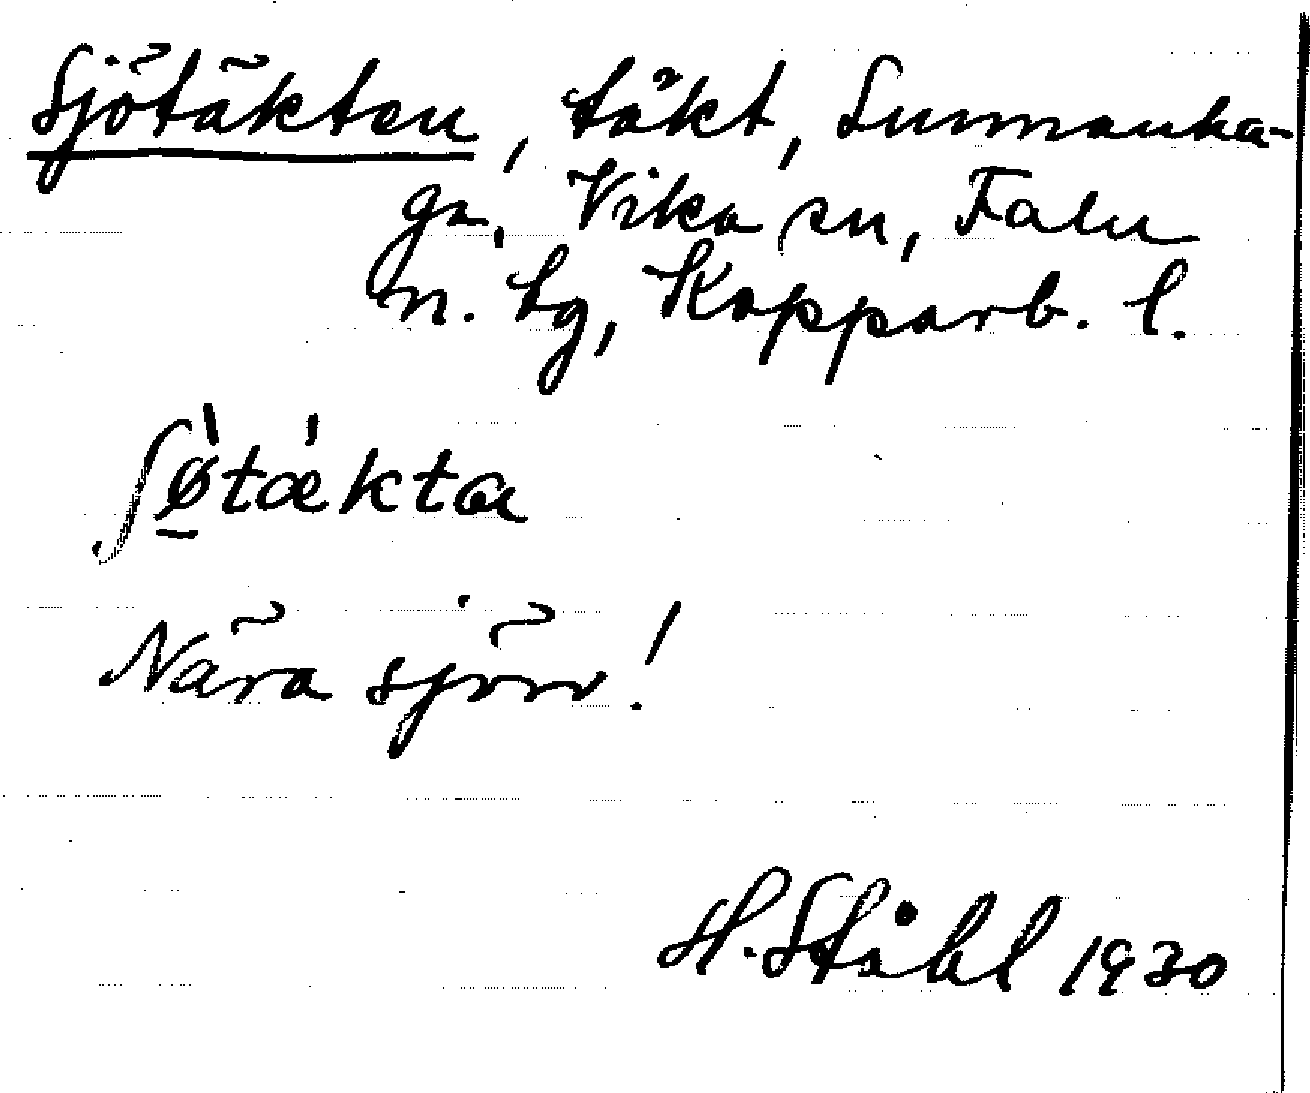 Sjötäkten, täkt, Sunnanha-
ga, Vika sn, Falu
n. tg, Kopparb. l.
ʃø̱̀tæ̀kta
Nära sjön!
H. Ståhl 1930